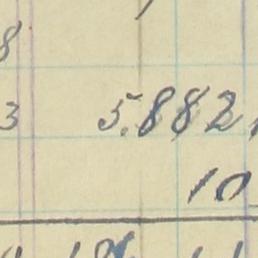 8
3 5.882
10